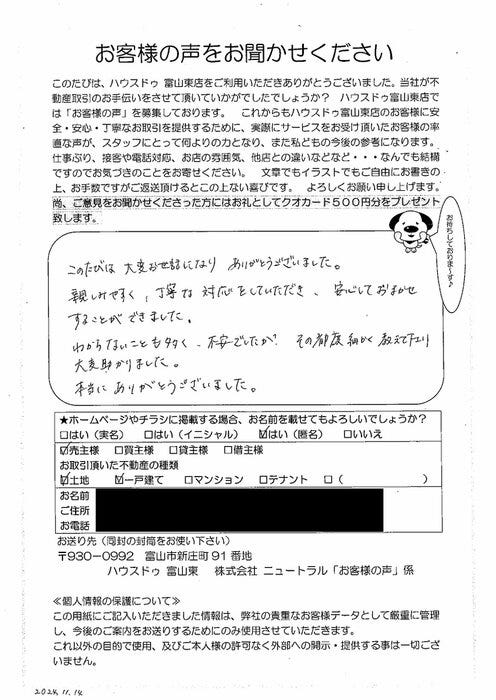 お客様の声をお聞かせください
このたびは、ハウスドゥ 富山東店をご利用いただきありがとうございました。当社が不
動産取引のお手伝いをさせて頂いていかがでしたでしょうか？ ハウスドゥ富山東店で
は「お客様の声」を募集しております。 これからもハウスドゥ富山東店のお客様に安
全・安心・丁寧なお取引を提供するために、実際にサービスをお受け頂いたお客様の率
直な声が、スタッフにとって何よりの力となり、また私どもの今後の参考になります。
仕事ぶり、接客や電話対応、お店の雰囲気、他店との違いなどなど・・・なんでも結構
ですのでお気づきのことをお寄せください。 文章でもイラストでもご自由にお書きの
上、お手数ですがご返送頂けるとこの上ない喜びです。 よろしくお願い申し上げます。
尚、ご意見をお聞かせくださった方にはお礼としてクオカード500円分をプレゼント
致します。
お待ちしておりま～す♪
このたびは 大変お世話になり ありがとうございました。
親しみやすく、丁寧な 対応をしていただき、安心しておまかせ
することができました。
わからないことも多く、不安でしたが、その都度細かく教えて下さり
大変助かりました。
本当に ありがとうございました。
★ホームページやチラシに掲載する場合、お名前を載せてもよろしいでしょうか？
□はい（実名） □はい（イニシャル） ☑はい（匿名） □いいえ
☑売主様 □買主様 □貸主様 □借主様
お取引頂いた不動産の種類
☑土地 ☑一戸建て □マンション □テナント □（ ）
お名前
ご住所
お電話
お送り先（同封の封筒をお使い下さい）
〒930-0992 富山市新庄町91番地
ハウスドゥ 富山東 株式会社 ニュートラル「お客様の声」係
≪個人情報の保護について≫
この用紙にご記入いただきました情報は、弊社の貴重なお客様データとして厳重に管理
し、今後のご案内をお送りするためにのみ使用させていただきます。
これ以外の目的で使用、及びご本人様の許可なく外部への開示・提供する事は一切ござ
いません。
2024.11.14